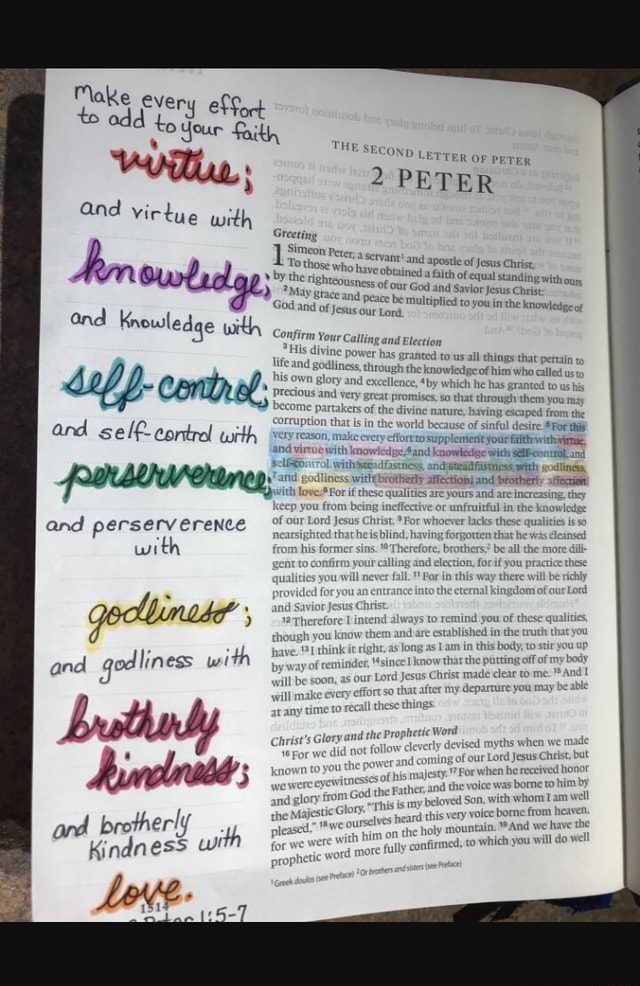 Make every effort
to add to your faith
virtue;
and virtue with
knowledge;
and Knowledge with
self-control;
and self-control with
perserverence;
and perserverence
with
godliness;
and godliness with
brotherly
kindness;
and brotherly
Kindness with
love.
1514
1:5-7
THE SECOND LETTER OF PETER
2 PETER
Greeting
1 Simeon Peter, a servant¹ and apostle of Jesus Christ,
To those who have obtained a faith of equal standing with ours
by the righteousness of our God and Savior Jesus Christ:
²May grace and peace be multiplied to you in the knowledge of
God and of Jesus our Lord.
Confirm Your Calling and Election
³His divine power has granted to us all things that pertain to
life and godliness, through the knowledge of him who called us to
his own glory and excellence, ⁴by which he has granted to us his
precious and very great promises, so that through them you may
become partakers of the divine nature, having escaped from the
corruption that is in the world because of sinful desire. ⁵For this
very reason, make every effort to supplement your faith with virtue,
and virtue with knowledge, ⁶and knowledge with self-control, and
self-control with steadfastness, and steadfastness with godliness,
⁷and godliness with brotherly affection, and brotherly affection
with love. ⁸For if these qualities are yours and are increasing, they
keep you from being ineffective or unfruitful in the knowledge
of our Lord Jesus Christ. ⁹For whoever lacks these qualities is so
nearsighted that he is blind, having forgotten that he was cleansed
from his former sins. ¹⁰Therefore, brothers,² be all the more dili-
gent to confirm your calling and election, for if you practice these
qualities you will never fall. ¹¹For in this way there will be richly
provided for you an entrance into the eternal kingdom of our Lord
and Savior Jesus Christ.
¹²Therefore I intend always to remind you of these qualities,
though you know them and are established in the truth that you
have. ¹³I think it right, as long as I am in this body, to stir you up
by way of reminder, ¹⁴since I know that the putting off of my body
will be soon, as our Lord Jesus Christ made clear to me. ¹⁵And I
will make every effort so that after my departure you may be able
at any time to recall these things.
Christ's Glory and the Prophetic Word
¹⁶For we did not follow cleverly devised myths when we made
known to you the power and coming of our Lord Jesus Christ, but
we were eyewitnesses of his majesty. ¹⁷For when he received honor
and glory from God the Father, and the voice was borne to him by
the Majestic Glory, "This is my beloved Son, with whom I am well
pleased," ¹⁸we ourselves heard this very voice borne from heaven,
for we were with him on the holy mountain. ¹⁹And we have the
prophetic word more fully confirmed, to which you will do well
¹Greek doulos (see Preface) ²Or brothers and sisters (see Preface)